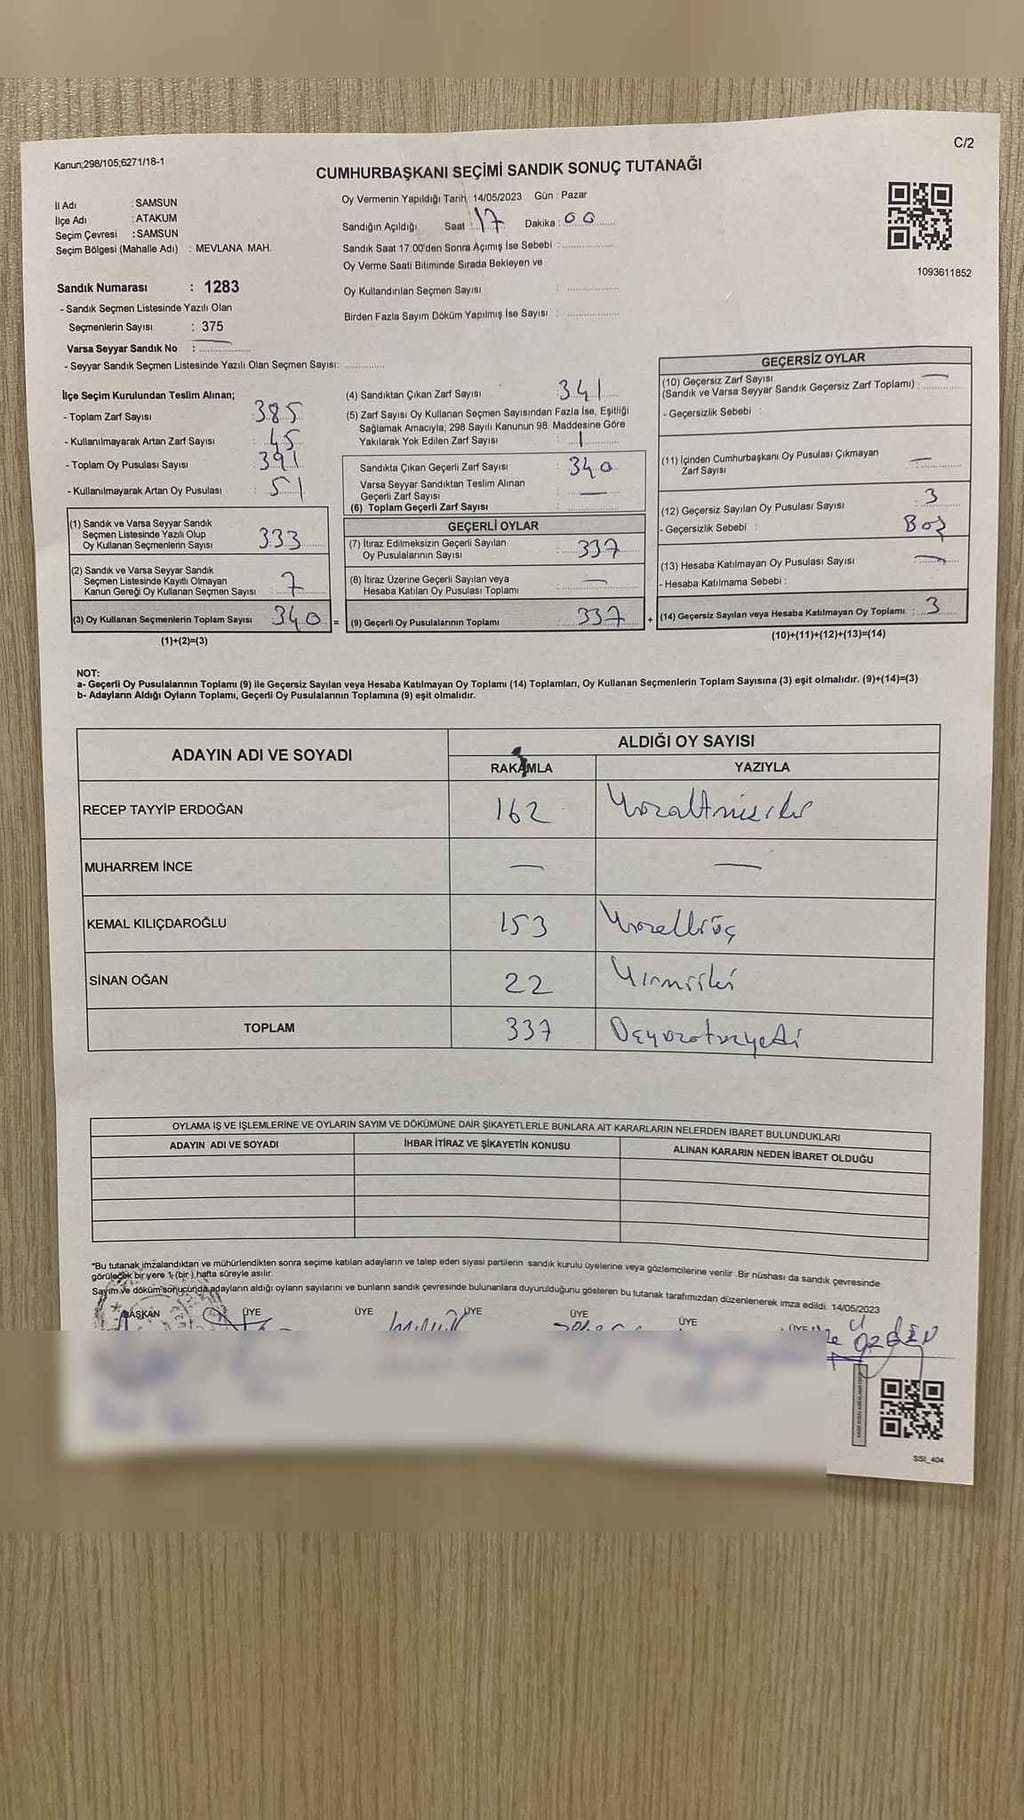 C/2
Kanun;298/105;6271/18-1
CUMHURBAŞKANI SEÇİMİ SANDIK SONUÇ TUTANAĞI
İl Adı : SAMSUN
İlçe Adı : ATAKUM
Seçim Çevresi : SAMSUN
Seçim Bölgesi (Mahalle Adı) : MEVLANA MAH.
Oy Vermenin Yapıldığı Tarih 14/05/2023 Gün : Pazar
Sandığın Açıldığı Saat : 17 Dakika : 00
Sandık Saat 17:00'den Sonra Açımış İse Sebebi :
Oy Verme Saati Bitiminde Sırada Bekleyen ve
Oy Kullandırılan Seçmen Sayısı :
Birden Fazla Sayım Döküm Yapılmış İse Sayısı :
1093611852
Sandık Numarası : 1283
- Sandık Seçmen Listesinde Yazılı Olan
Seçmenlerin Sayısı : 375
Varsa Seyyar Sandık No : —
- Seyyar Sandık Seçmen Listesinde Yazılı Olan Seçmen Sayısı:
İlçe Seçim Kurulundan Teslim Alınan;
- Toplam Zarf Sayısı : 385
- Kullanılmayarak Artan Zarf Sayısı : 45
- Toplam Oy Pusulası Sayısı : 391
- Kullanılmayarak Artan Oy Pusulası : 51
(1) Sandık ve Varsa Seyyar Sandık
Seçmen Listesinde Yazılı Olup
Oy Kullanan Seçmenlerin Sayısı : 333
(2) Sandık ve Varsa Seyyar Sandık
Seçmen Listesinde Kayıtlı Olmayan
Kanun Gereği Oy Kullanan Seçmen Sayısı : 7
(3) Oy Kullanan Seçmenlerin Toplam Sayısı : 340 =
(1)+(2)=(3)
(4) Sandıktan Çıkan Zarf Sayısı : 341
(5) Zarf Sayısı Oy Kullanan Seçmen Sayısından Fazla İse, Eşitliği
Sağlamak Amacıyla; 298 Sayılı Kanunun 98. Maddesine Göre
Yakılarak Yok Edilen Zarf Sayısı : 1
Sandıkta Çıkan Geçerli Zarf Sayısı : 340
Varsa Seyyar Sandıktan Teslim Alınan
Geçerli Zarf Sayısı : —
(6) Toplam Geçerli Zarf Sayısı :
GEÇERLİ OYLAR
(7) İtiraz Edilmeksizin Geçerli Sayılan
Oy Pusulalarının Sayısı : 337
(8) İtiraz Üzerine Geçerli Sayılan veya
Hesaba Katılan Oy Pusulası Toplamı : —
(9) Geçerli Oy Pusulalarının Toplamı : 337 +
GEÇERSİZ OYLAR
(10) Geçersiz Zarf Sayısı —
(Sandık ve Varsa Seyyar Sandık Geçersiz Zarf Toplamı) :
- Geçersizlik Sebebi :
(11) İçinden Cumhurbaşkanı Oy Pusulası Çıkmayan
Zarf Sayısı : —
(12) Geçersiz Sayılan Oy Pusulası Sayısı : 3
- Geçersizlik Sebebi : Boş
(13) Hesaba Katılmayan Oy Pusulası Sayısı : —
- Hesaba Katılmama Sebebi :
(14) Geçersiz Sayılan veya Hesaba Katılmayan Oy Toplamı : 3
(10)+(11)+(12)+(13)=(14)
NOT:
a- Geçerli Oy Pusulalarının Toplamı (9) ile Geçersiz Sayılan veya Hesaba Katılmayan Oy Toplamı (14) Toplamları, Oy Kullanan Seçmenlerin Toplam Sayısına (3) eşit olmalıdır. (9)+(14)=(3)
b- Adayların Aldığı Oyların Toplamı, Geçerli Oy Pusulalarının Toplamına (9) eşit olmalıdır.
ADAYIN ADI VE SOYADI
ALDIĞI OY SAYISI
RAKAMLA YAZIYLA
RECEP TAYYİP ERDOĞAN 162 Yüzaltmışiki
MUHARREM İNCE — —
KEMAL KILIÇDAROĞLU 153 Yüzelliüç
SİNAN OĞAN 22 Yirmiiki
TOPLAM 337 Üçyüzotuzyedi
OYLAMA İŞ VE İŞLEMLERİNE VE OYLARIN SAYIM VE DÖKÜMÜNE DAİR ŞİKAYETLERLE BUNLARA AİT KARARLARIN NELERDEN İBARET BULUNDUKLARI
ADAYIN ADI VE SOYADI İHBAR İTİRAZ VE ŞİKAYETİN KONUSU ALINAN KARARIN NEDEN İBARET OLDUĞU
*Bu tutanak imzalandıktan ve mühürlendikten sonra seçime katılan adayların ve talep eden siyasi partilerin sandık kurulu üyelerine veya gözlemcilerine verilir. Bir nüshası da sandık çevresinde
görülecek bir yere 1 (bir) hafta süreyle asılır.
Sayım ve döküm sonucunda adayların aldığı oyların sayılarını ve bunların sandık çevresinde bulunanlara duyurulduğunu gösteren bu tutanak tarafımızdan düzenlenerek imza edildi. 14/05/2023
BAŞKAN ÜYE ÜYE ÜYE ÜYE ÜYE ÜYE
SSI_404